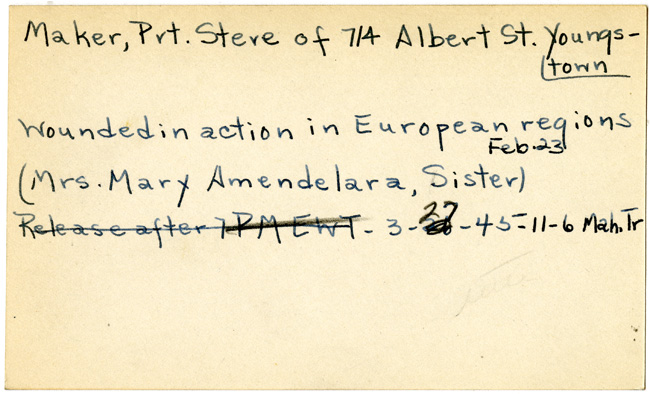 Maker, Prt. Steve of 714 Albert St. Youngs-
town
Wounded in action in European regions
Feb. 23
(Mrs. Mary Amendelara, Sister)
Release after 7 PM EWT - 3-27-45-11-6 Mah. Tr